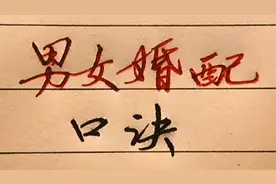 男女婚配
口诀